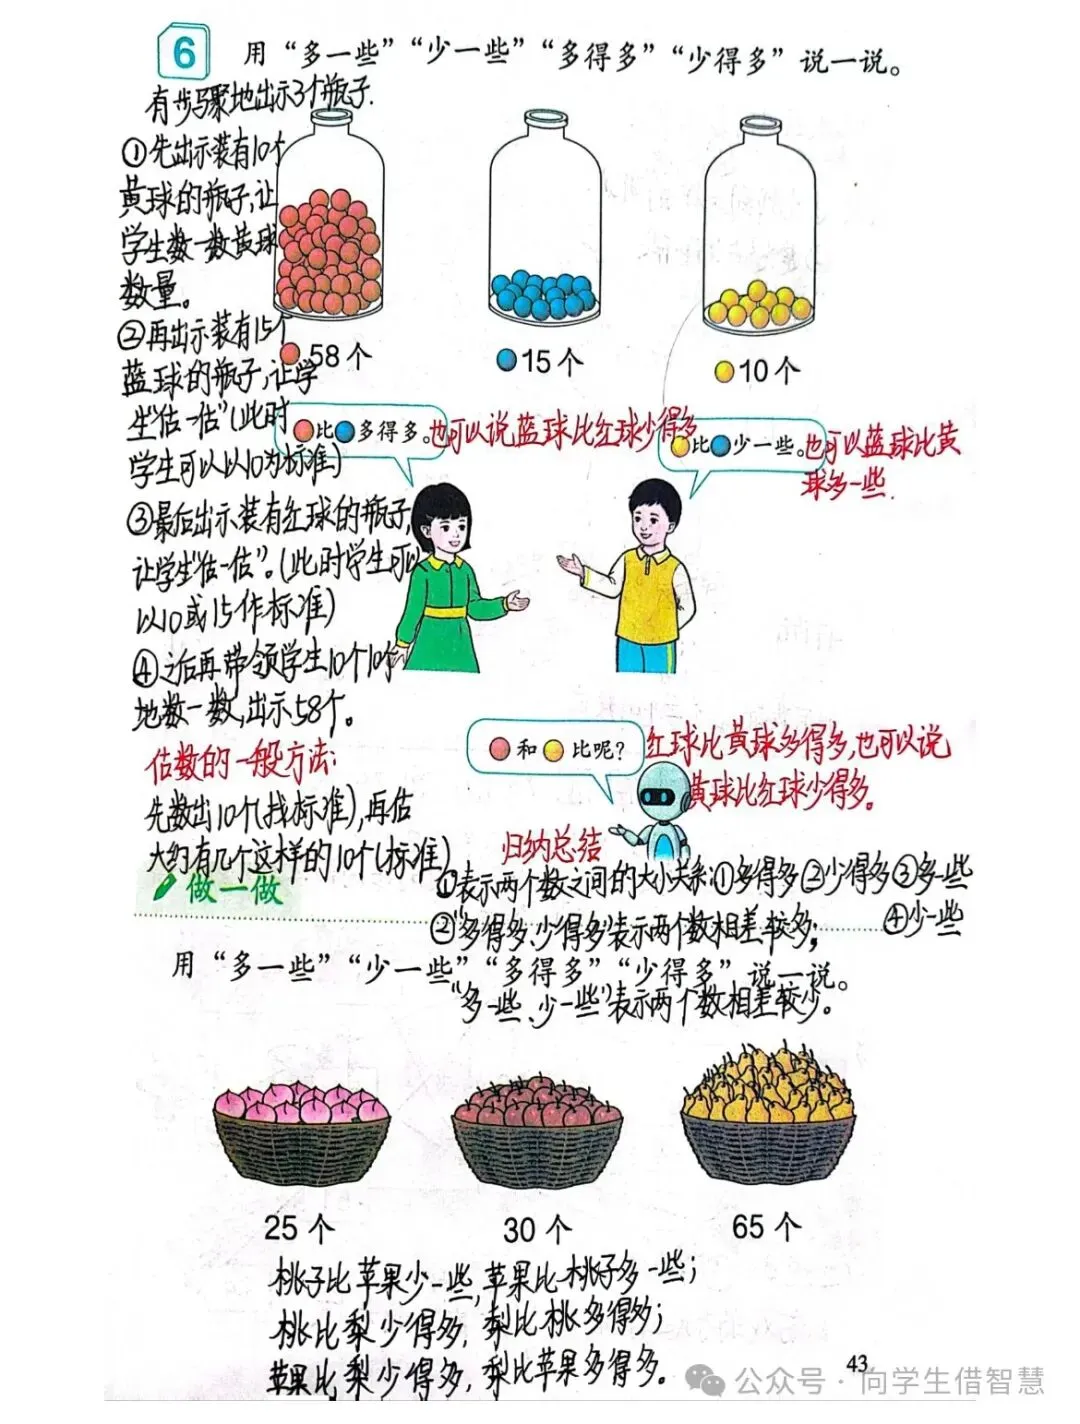 6 用“多一些”“少一些”“多得多”“少得多”说一说。
有步骤地出示3个瓶子.
①先出示装有10个
黄球的瓶子,让
学生数一数黄球
数量。
②再出示装有15个
蓝球的瓶子,让学
生“估一估”(此时
学生可以以10为标准)
③最后出示装有红球的瓶子,
让学生“估一估”。(此时学生可以
以10或15作标准)
④之后再带领学生10个10个
地数一数,出示58个。
估数的一般方法:
先数出10个(找标准),再估
大约有几个这样的10个(标准)
58个
15个
10个
比 多得多。
也可以说蓝球比红球少得多
比 少一些。
也可以蓝球比黄
球多一些.
和 比呢?
红球比黄球多得多,也可以说
黄球比红球少得多。
归纳总结
①表示两个数之间的大小关系:①多得多②少得多③多一些
④少一些
②“多得多、少得多”表示两个数相差较多;
“多一些、少一些”表示两个数相差较少。
做一做
用“多一些”“少一些”“多得多”“少得多”说一说。
25个
30个
65个
桃子比苹果少一些,苹果比桃子多一些;
桃比梨少得多,梨比桃多得多;
苹果比梨少得多,梨比苹果多得多。
43
公众号·向学生借智慧